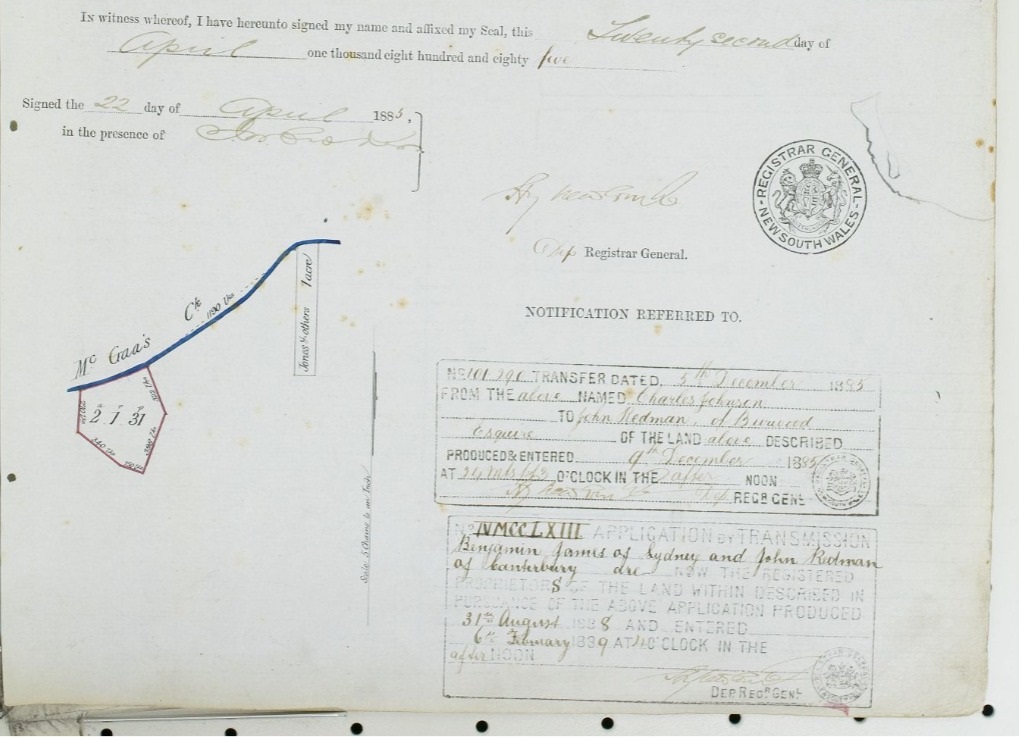 In witness whereof, I have hereunto signed my name and affixed my Seal, this Twenty second day of
April one thousand eight hundred and eighty five
Signed the 22 day of April 1885,
in the presence of
REGISTRAR GENERAL
NEW SOUTH WALES
Hy Newcomb
Dep Registrar General.
NOTIFICATION REFERRED TO.
Mc Gaa's Ck
1190 lks
Jones & others 1 acre
2 1 31
Scale 5 Chains to an Inch
No 101290 TRANSFER DATED, 5th December 1885
FROM THE above NAMED Charles Johnson
TO John Redman, of Burwood
Esquire OF THE LAND above DESCRIBED
PRODUCED & ENTERED 9th December 1885
AT O'CLOCK IN THE after NOON
REGR GENL
No MCCLXIII APPLICATION BY TRANSMISSION
Benjamin James of Sydney and John Redman
of Canterbury are NOW THE REGISTERED
PROPRIETORS OF THE LAND WITHIN DESCRIBED IN
PURSUANCE OF THE ABOVE APPLICATION PRODUCED
31st August 1888 AND ENTERED
6th February 1889 AT O'CLOCK IN THE
after NOON
DEP REGR GENL